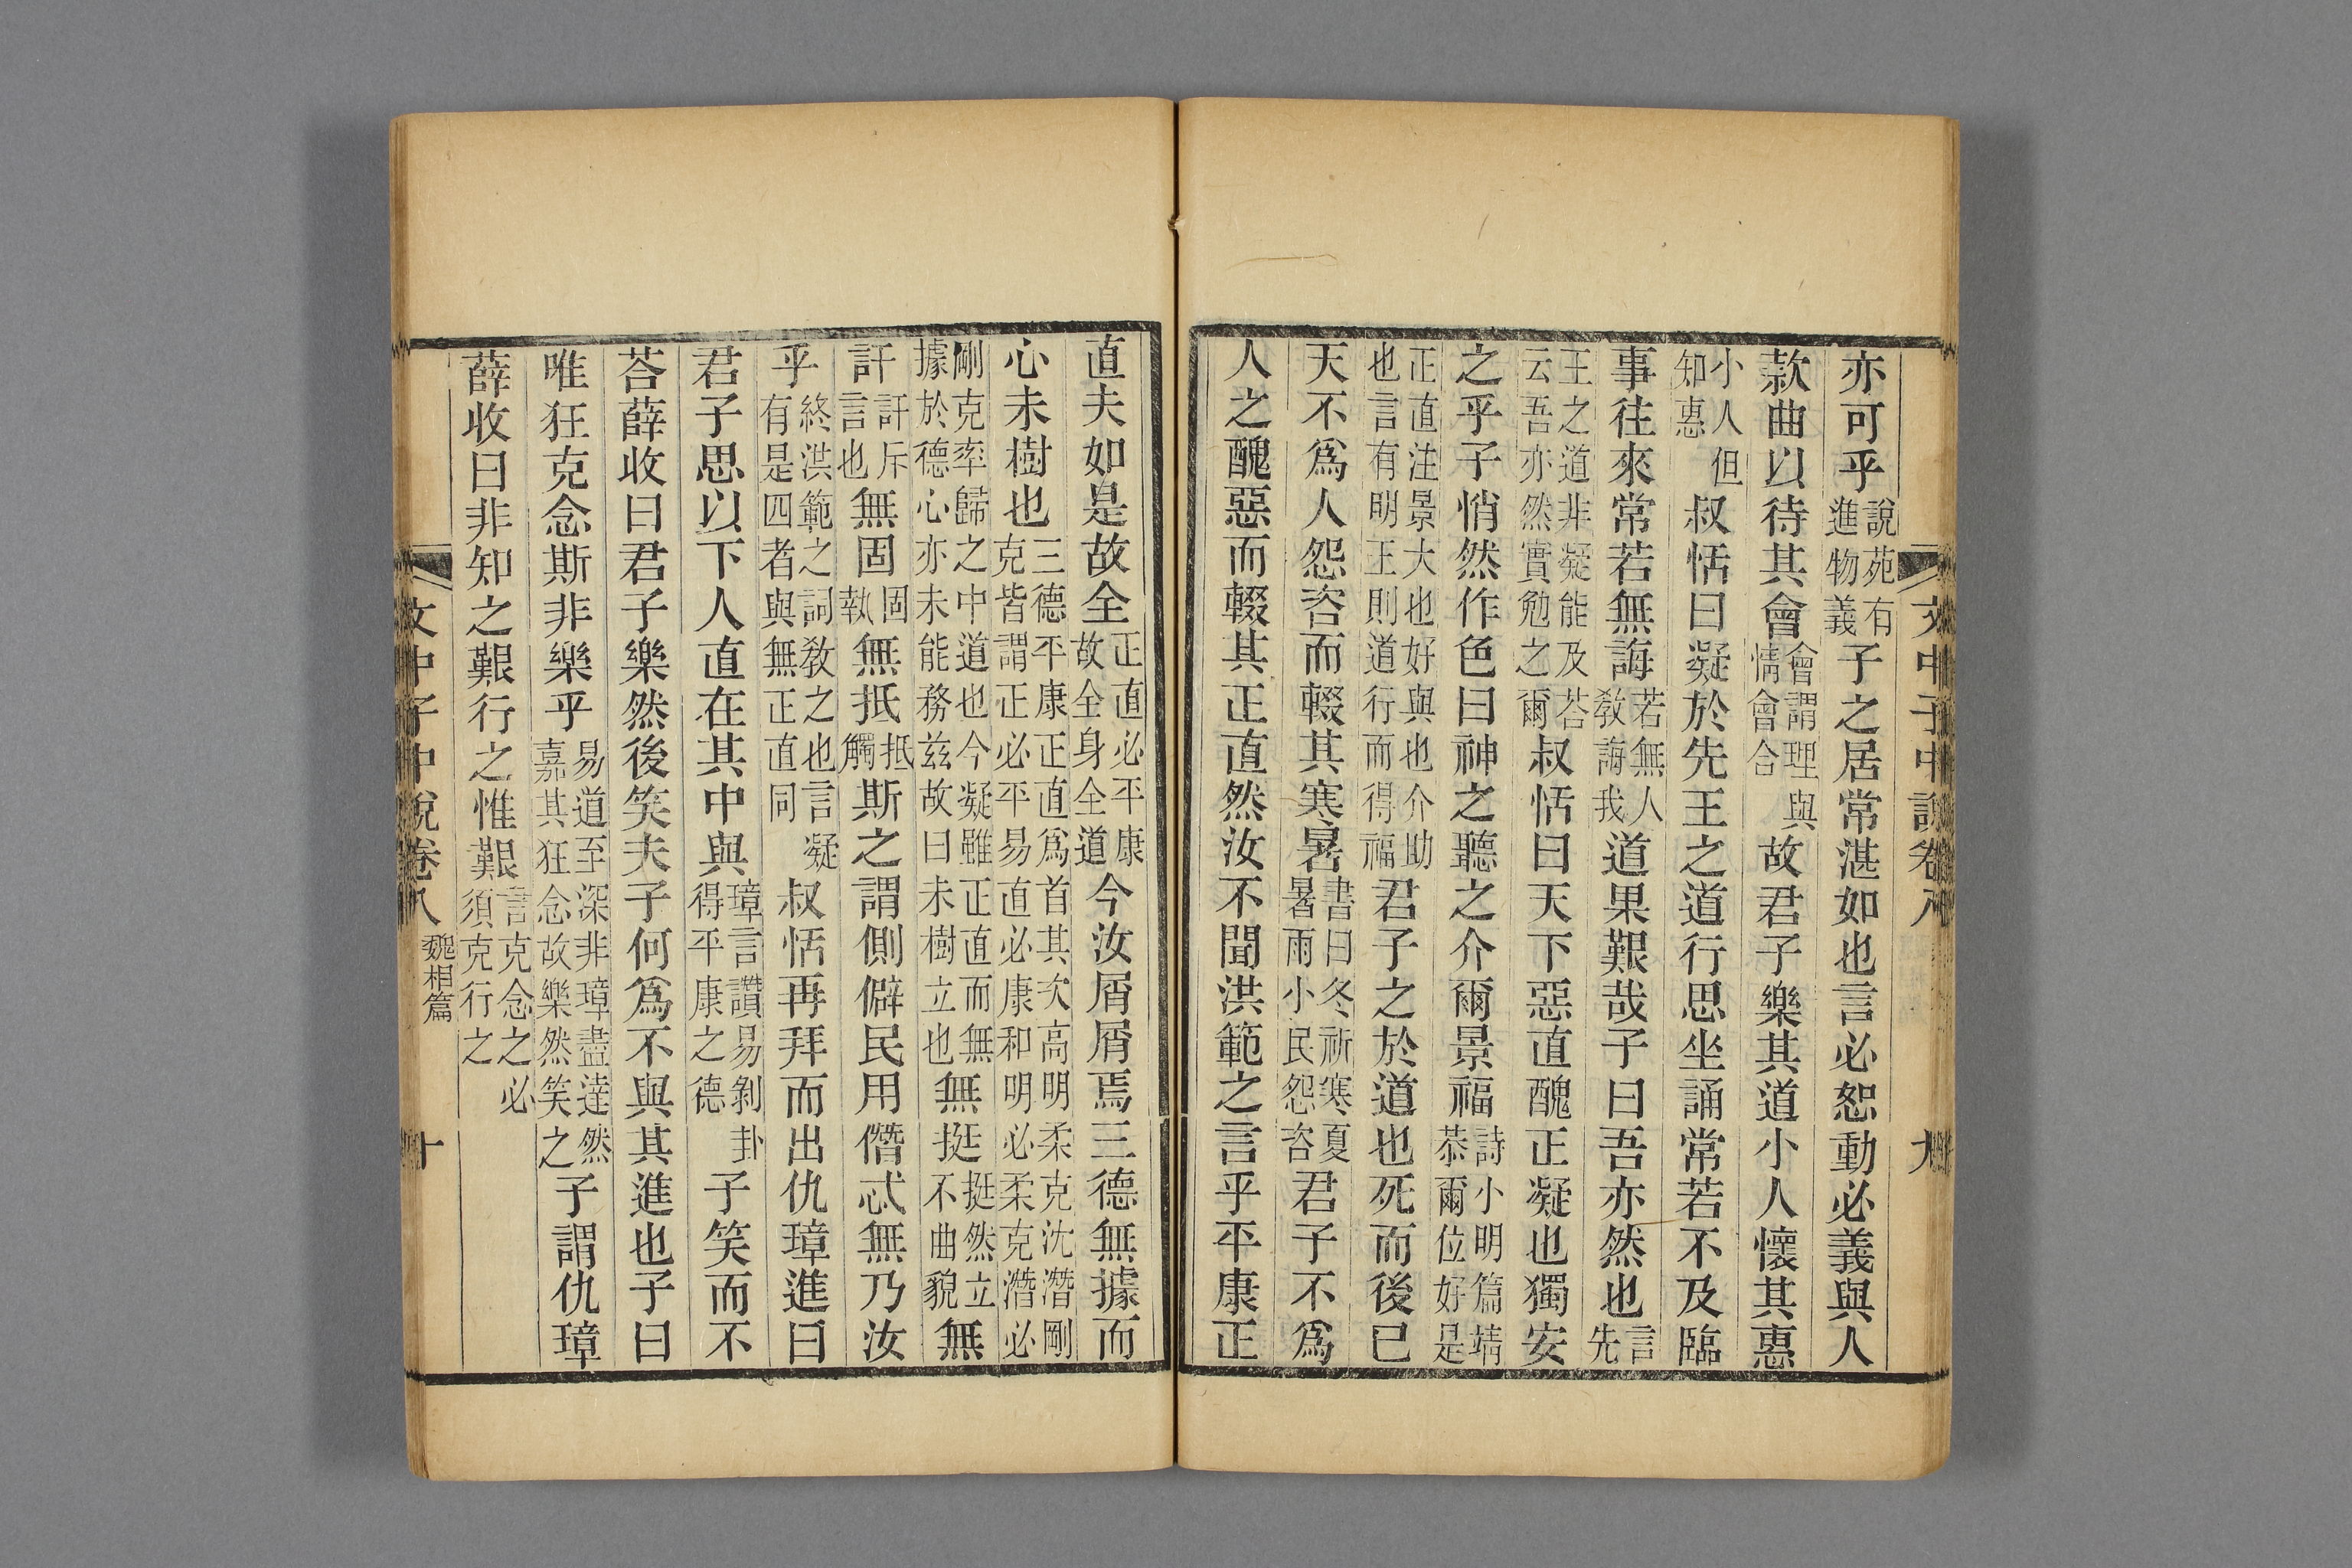 文中子中說卷八　九
亦可乎說苑有進物義子之居常湛如也言必恕動必義與人
款曲以待其會會謂理與情會合故君子樂其道小人懷其惠
小人但知惠叔恬曰凝於先王之道行思坐誦常若不及臨
事往來常若無誨若無人教誨我道果艱哉子曰吾亦然也言先
王之道非凝能及荅云吾亦然實勉之爾叔恬曰天下惡直醜正凝也獨安
之乎子悄然作色曰神之聽之介爾景福詩小明篇靖恭爾位好是
正直注景大也好與也介助也言有明王則道行而得福君子之於道也死而後已
天不爲人怨咨而輟其寒暑書曰冬祈寒夏暑雨小民怨咨君子不爲
人之醜惡而輟其正直然汝不聞洪範之言乎平康正
直夫如是故全正直必平康故全身全道今汝屑屑焉三德無據而
心未樹也三德平康正直爲首其次高明柔克沈潛剛克皆謂正必平易直必康和明必柔克潛必
剛克率歸之中道也今凝雖正直而無據於德心亦未能務茲故曰未樹立也無挺挺然立不曲貌無
訐訐斥言也無固固執無抵抵觸斯之謂側僻民用僭忒無乃汝
乎終洪範之詞教之也言凝有是四者與無正直同叔恬再拜而出仇璋進曰
君子思以下人直在其中與璋言讚易剝卦得平康之德子笑而不
荅薛收曰君子樂然後笑夫子何爲不與其進也子曰
唯狂克念斯非樂乎易道至深非璋盡達然嘉其狂念故樂然笑之子謂仇璋
薛收曰非知之艱行之惟艱言克念之必須克行之
文中子中說卷八　魏相篇　十